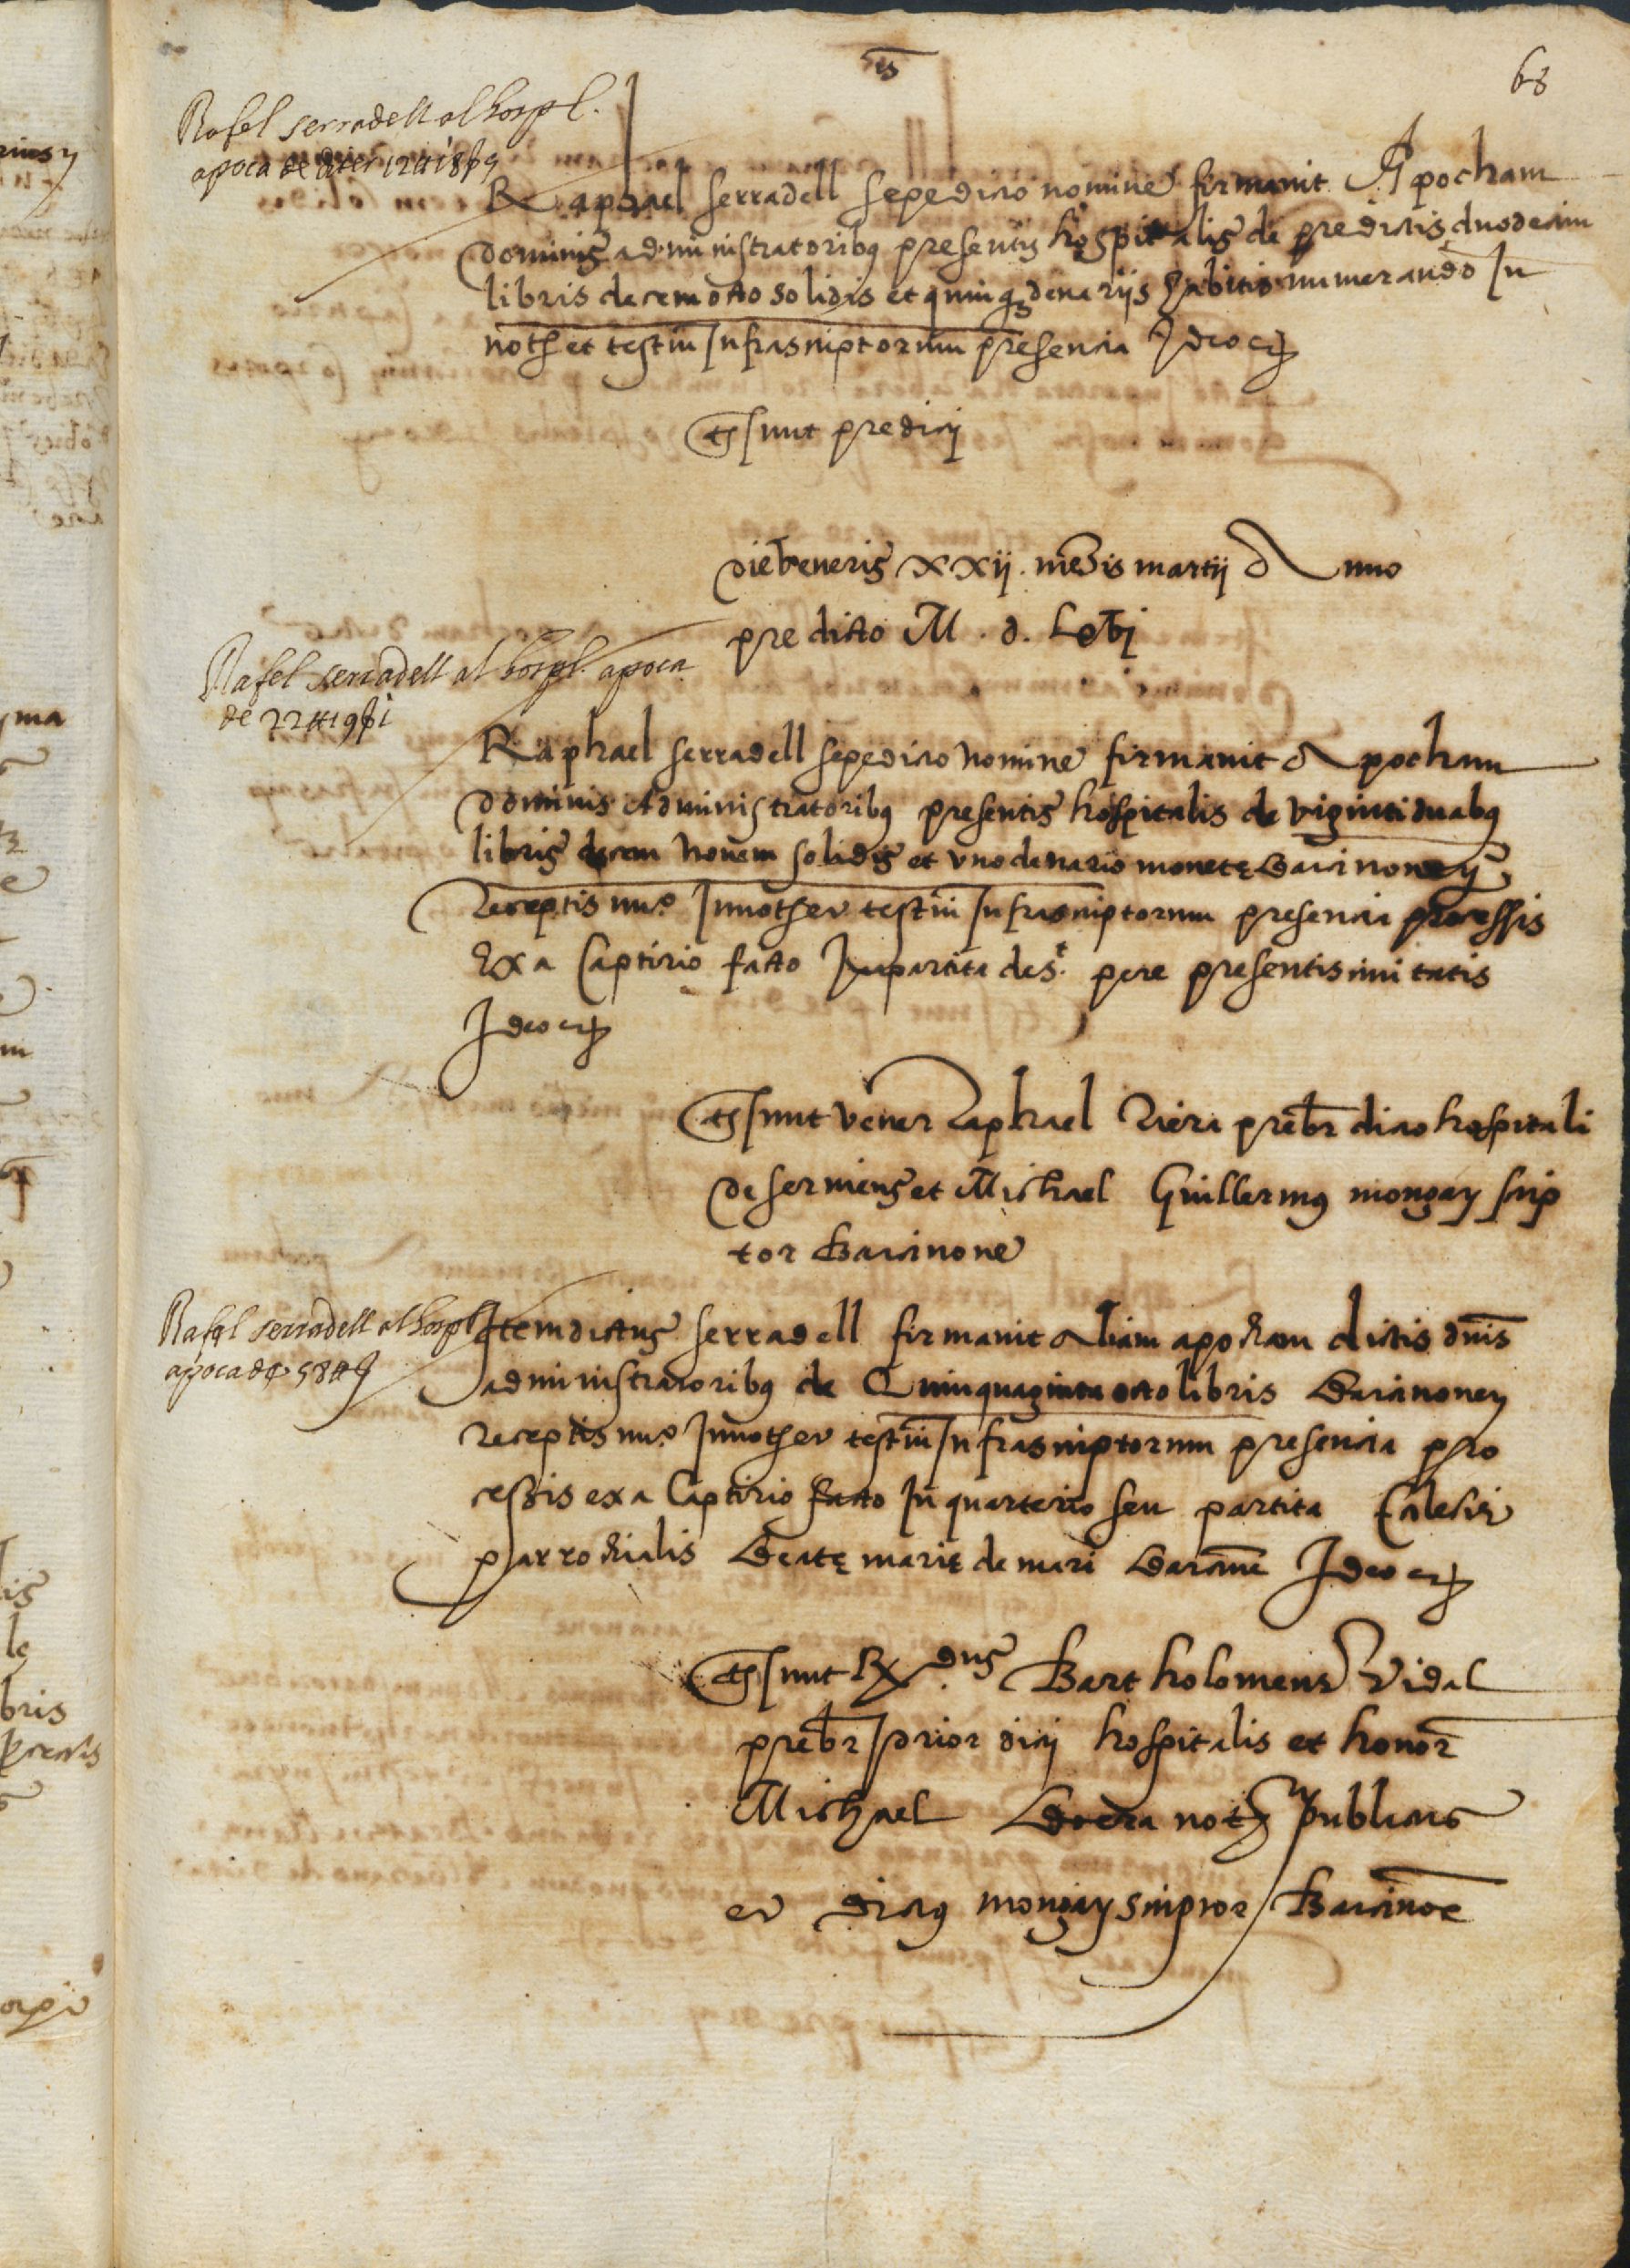 68
Rafel serradell al hospl.
apoca de 12 ₶ 18 ẞ 5
Raphael serradell sepedicto nomine firmavit Apocham
dominis administratoribus presentis hospitalis de predictis duodecim
libris decem octo solidis et quinque denariis habitis numerando In
noth et testiu Infrascriptorum presencia Ideo etc
Ts sunt predicti
die veneris xxii. mensis martii Anno
predicto M. d. Lvi
Rafel serradell al hospl. apoca
de 22 ₶ 19 ẞ i
Raphael serradell sepedicto nomine firmavit Apocham
dominis Administratoribus presentis hospitalis de viginti duabus
libris decem novem solidis et uno denario monetę Barcinonen
Receptis nuo. In noth et testiu Infrascriptorum presencia processis
Ex a Captirio facto In partita des. pere presentis civitatis
Ideo etc
Ts sunt vener Raphael Riera prebr dicto hospitali
deserviens et Michael Guillermus mongay scrip
tor Barcinone
Rafel serradell al hospl
apoca de 58 ₶
Item dictus serradell firmavit Aliam apocham dictis dnis
administratoribus de Quinquaginta octo libris Barcinonen
Receptis nuo. In noth et testiu Infrascriptorum presencia pro
cessis ex a Captirio facto In quarterio seu partita Eclesie
parrochialis Beatę marię de mari Barcine Ideo etc
Ts sunt Rdus Bartholomeus Vidal
prebr prior dicti hospitalis et honor
Michael Borera noth publicus
et dictus mongay scriptor Barcinoe